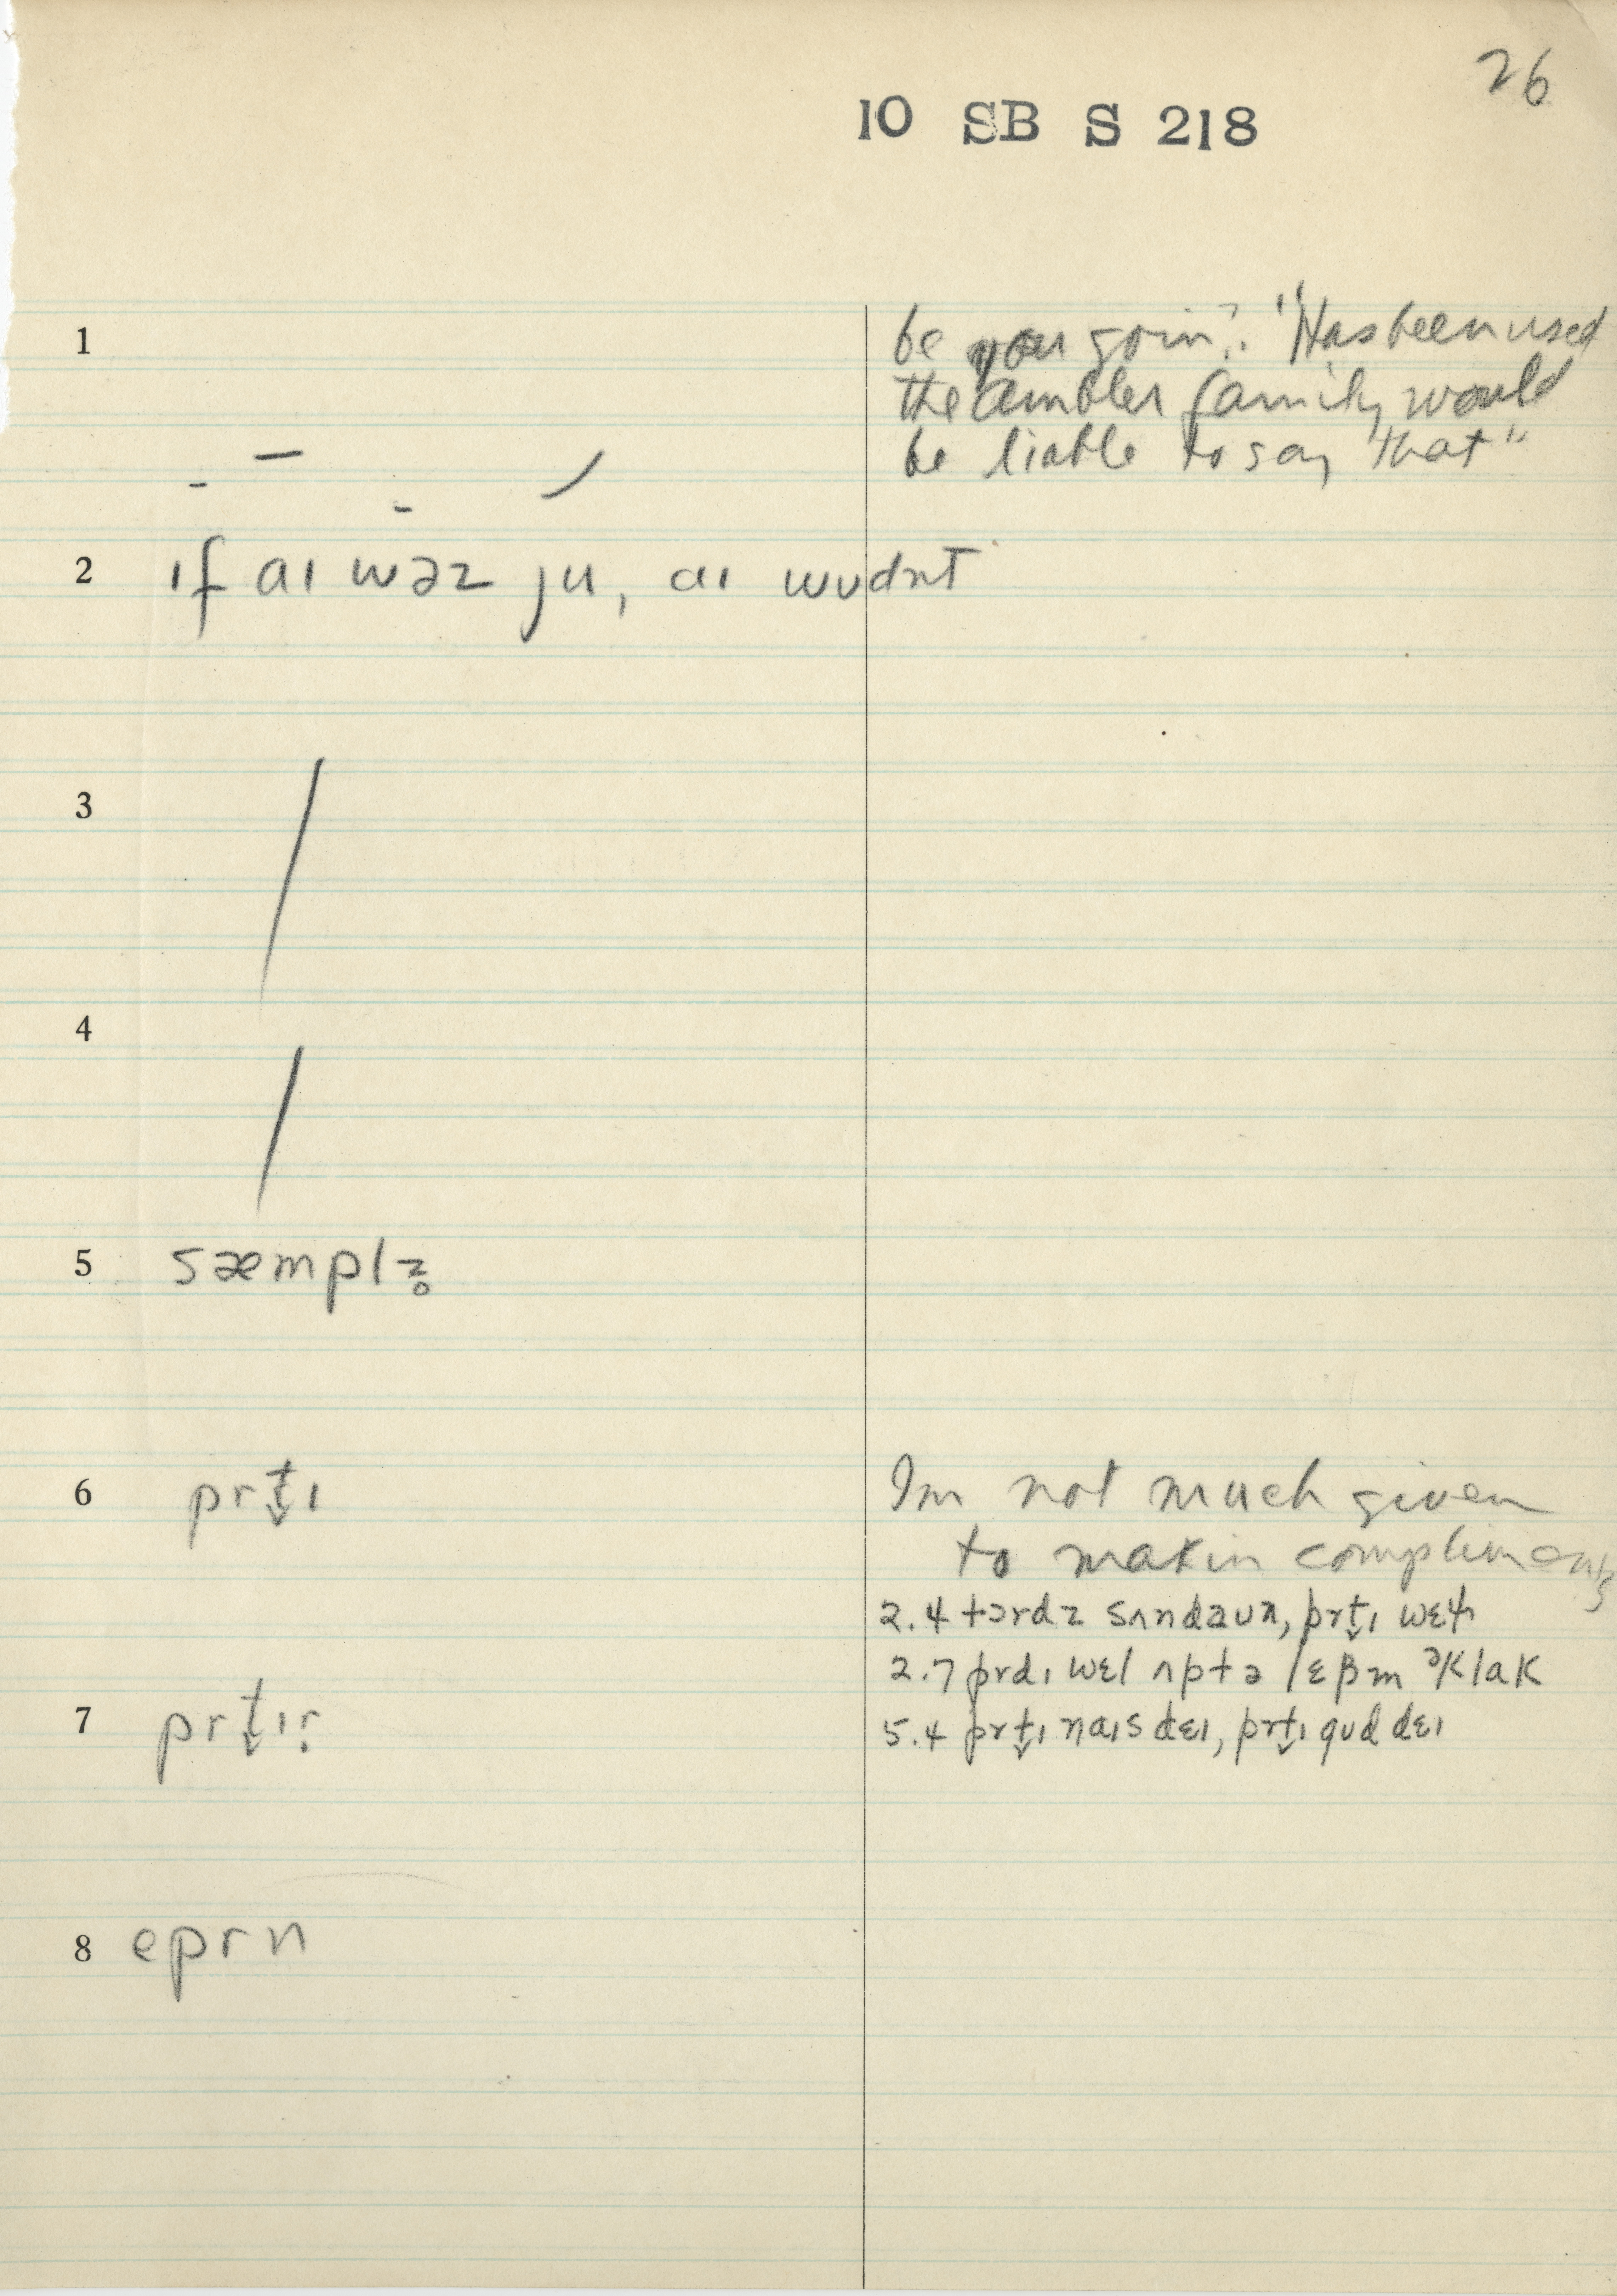 26
10 SB S 218
1
be you goin? "Has been used
the Ambler family would
be liable to say that"
2 ɪf aɪ wəz ju, aɪ wʊdn̩t
3
4
5 sæmplz̥
6 prt̬ɪ
I'm not much given
to makin compliments
2.4 tərdz sʌndaʊn, prt̬ɪ
2.7 prdɪ wɛl ʌptə əklak
7 prt̬ɪr
5.4 prt̬ɪ naɪs dɛɪ, prt̬ɪ gʊd dɛɪ
8 eprn